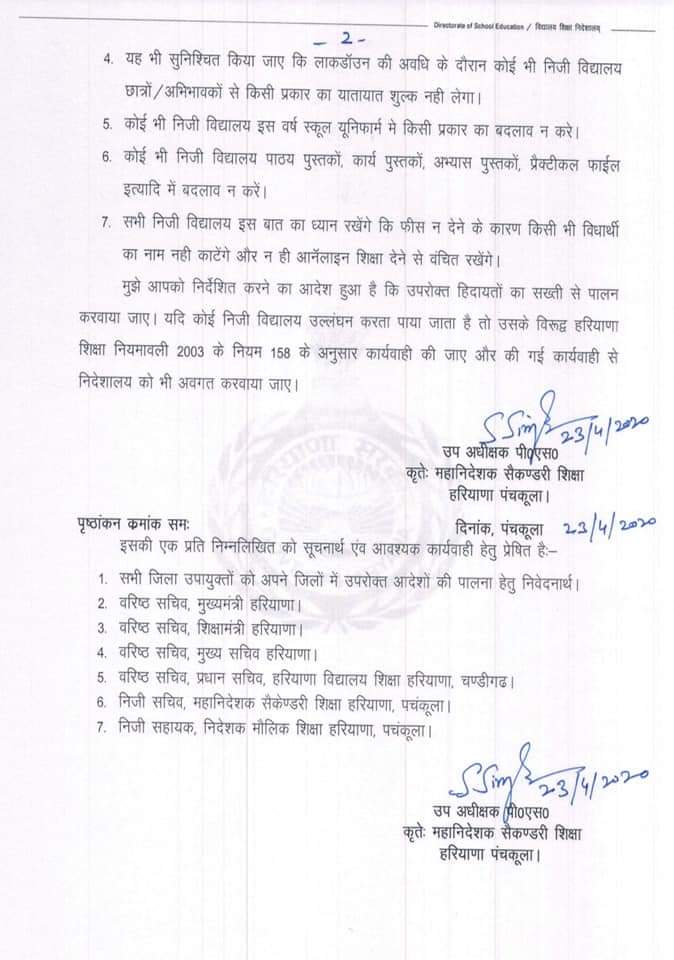 Directorate of School Education / विद्यालय शिक्षा निदेशालय
- 2 -
4. यह भी सुनिश्चित किया जाए कि लाकडॉउन की अवधि के दौरान कोई भी निजी विद्यालय
छात्रों/अभिभावकों से किसी प्रकार का यातायात शुल्क नही लेगा।
5. कोई भी निजी विद्यालय इस वर्ष स्कूल यूनिफार्म मे किसी प्रकार का बदलाव न करे।
6. कोई भी निजी विद्यालय पाठय पुस्तकों, कार्य पुस्तकों, अभ्यास पुस्तकों, प्रैक्टीकल फाईल
इत्यादि में बदलाव न करें।
7. सभी निजी विद्यालय इस बात का ध्यान रखेंगे कि फीस न देने के कारण किसी भी विधार्थी
का नाम नही काटेंगे और न ही आनॅलाइन शिक्षा देने से वंचित रखेंगे।
मुझे आपको निर्देशित करने का आदेश हुआ है कि उपरोक्त हिदायतों का सख्ती से पालन
करवाया जाए। यदि कोई निजी विद्यालय उल्लंघन करता पाया जाता है तो उसके विरूद्व हरियाणा
शिक्षा नियमावली 2003 के नियम 158 के अनुसार कार्यवाही की जाए और की गई कार्यवाही से
निदेशालय को भी अवगत करवाया जाए।
S Singh 23/4/2020
उप अधीक्षक पी0एस0
कृतेः महानिदेशक सैकण्डरी शिक्षा
हरियाणा पंचकूला।
पृष्ठांकन क्रमांक समः दिनांक, पंचकूला 23/4/2020
इसकी एक प्रति निम्नलिखित को सूचनार्थ एंव आवश्यक कार्यवाही हेतु प्रेषित हैः–
1. सभी जिला उपायुक्तों को अपने जिलों में उपरोक्त आदेशों की पालना हेतु निवेदनार्थ।
2. वरिष्ठ सचिव, मुख्यमंत्री हरियाणा।
3. वरिष्ठ सचिव, शिक्षामंत्री हरियाणा।
4. वरिष्ठ सचिव, मुख्य सचिव हरियाणा।
5. वरिष्ठ सचिव, प्रधान सचिव, हरियाणा विद्यालय शिक्षा हरियाणा, चण्डीगढ।
6. निजी सचिव, महानिदेशक सैकेण्डरी शिक्षा हरियाणा, पचंकूला।
7. निजी सहायक, निदेशक मौलिक शिक्षा हरियाणा, पचंकूला।
S Singh 23/4/2020
उप अधीक्षक पी0एस0
कृतेः महानिदेशक सैकण्डरी शिक्षा
हरियाणा पंचकूला।